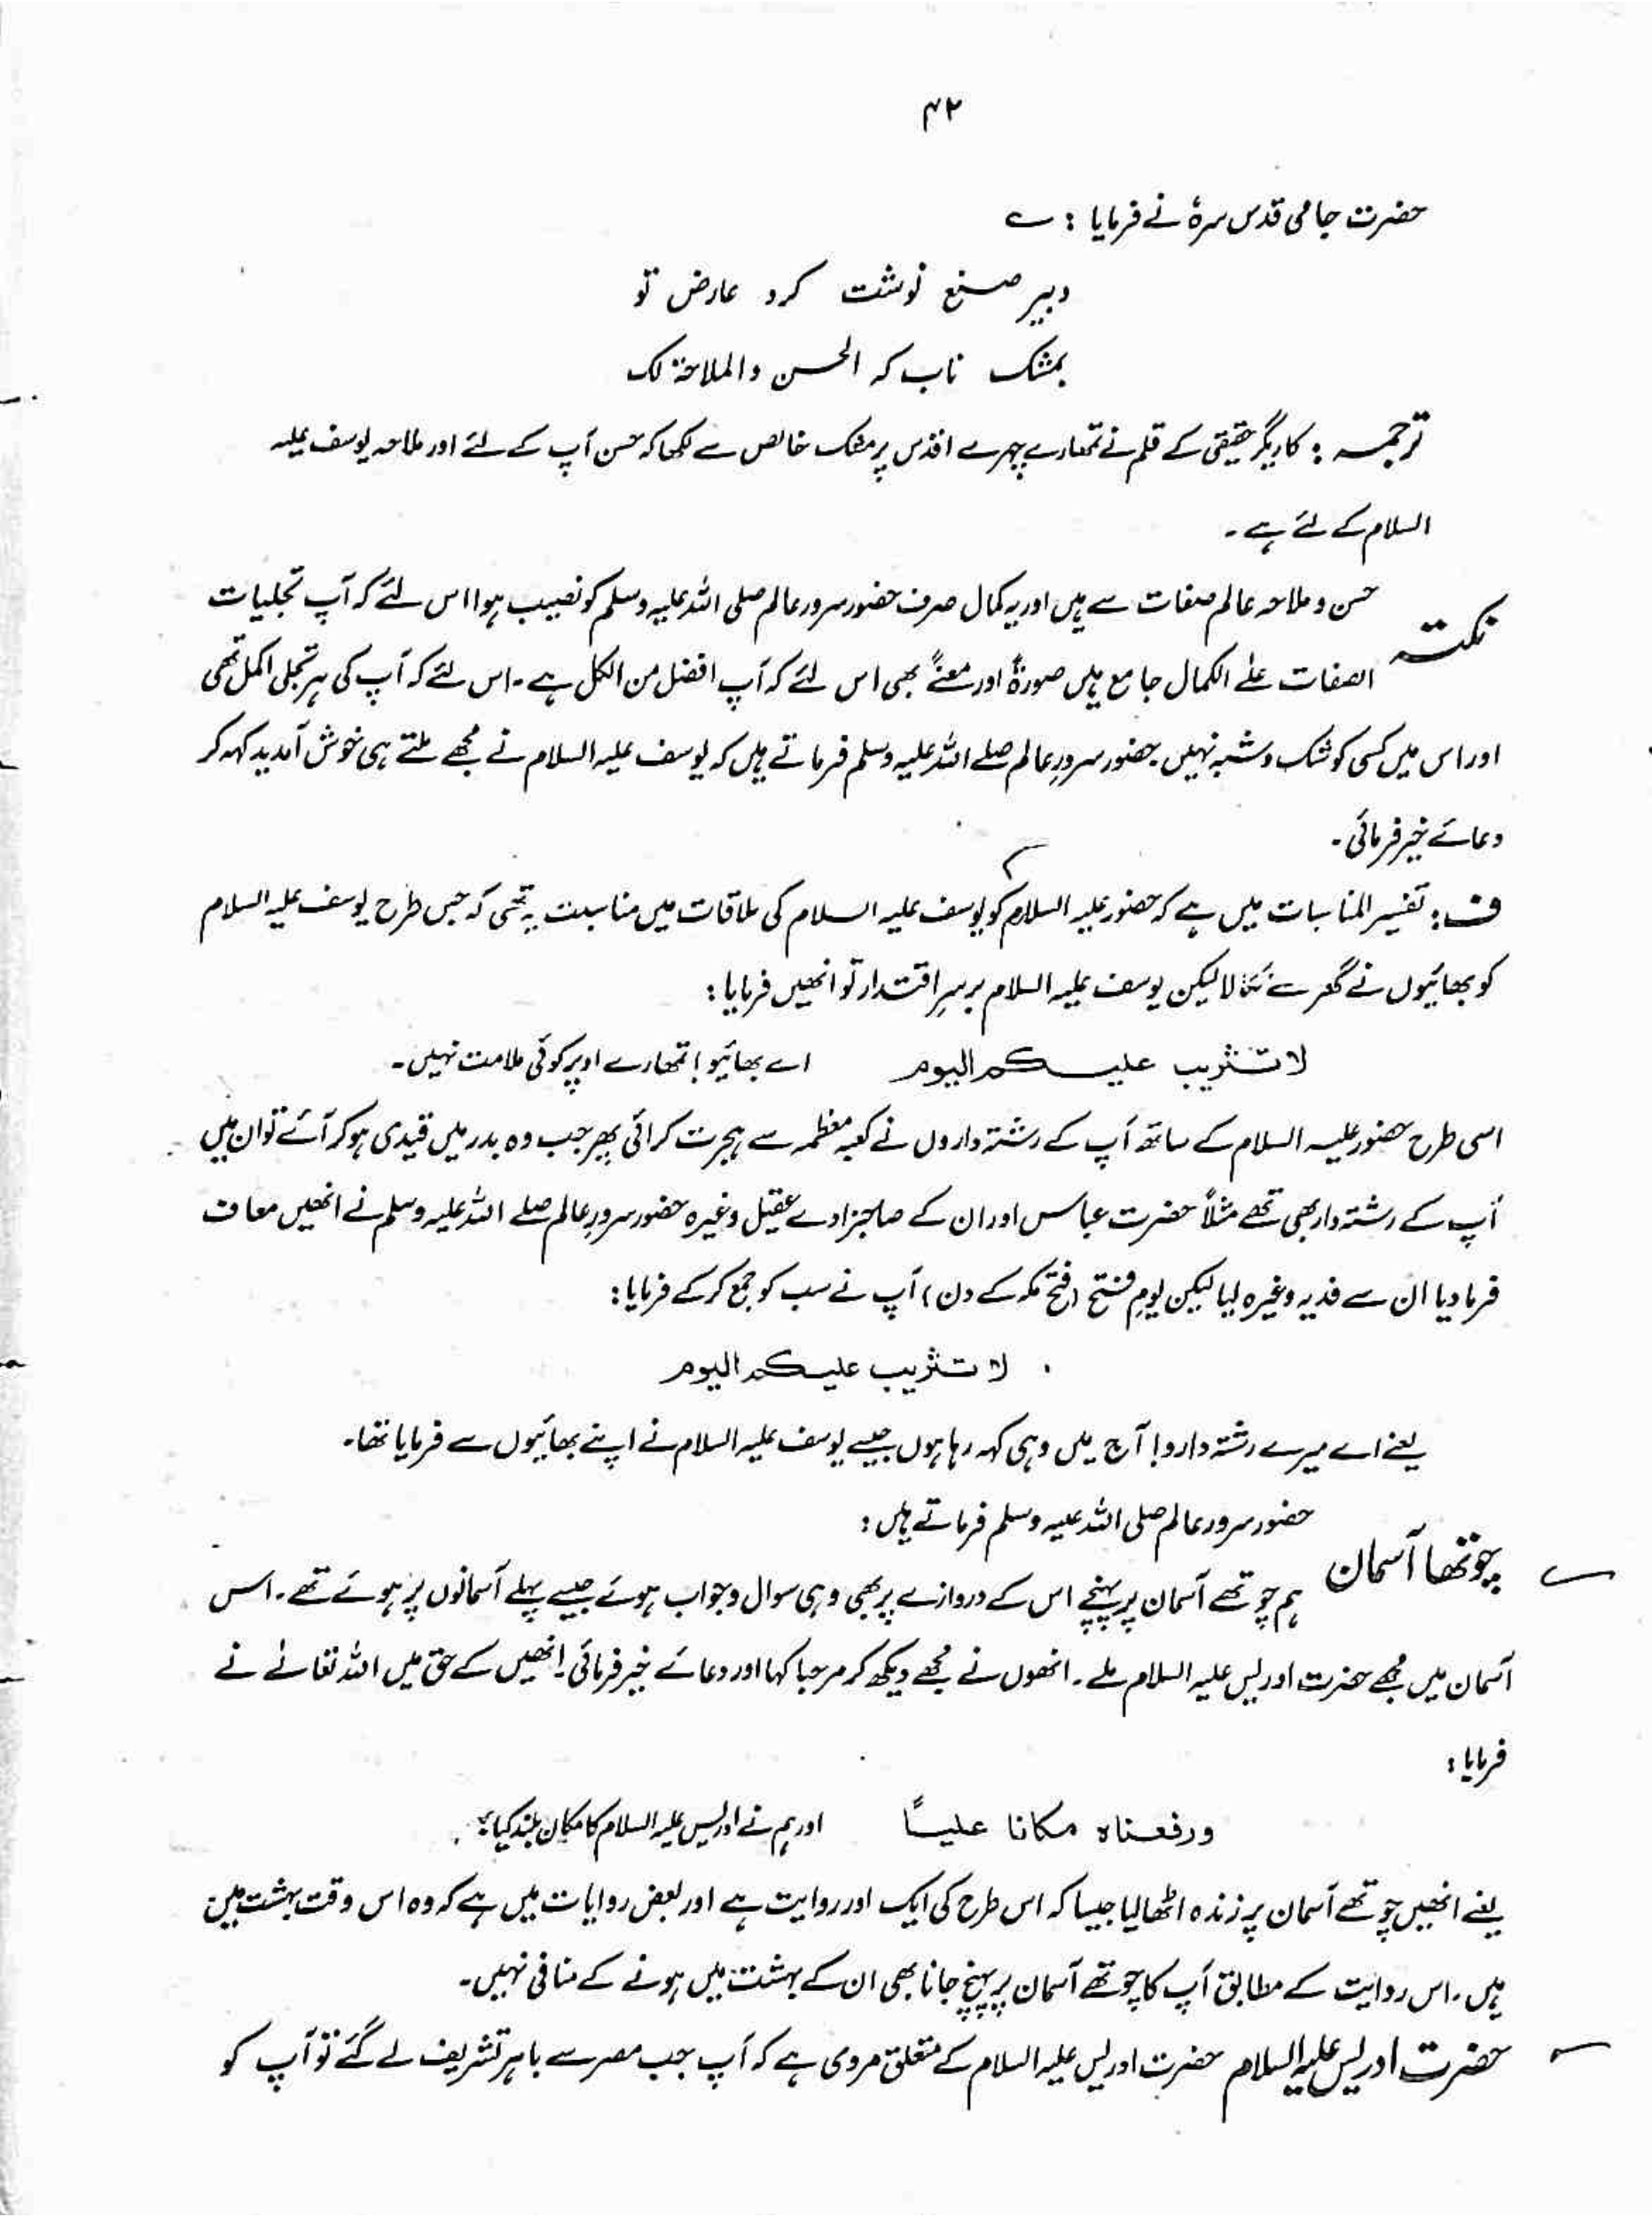 ۴۲
حضرت جامی قدس سرہٗ نے فرمایا : ؎
دبیر صنع نوشت کرد عارض تو
بمشک ناب کہ الحسن والملاحۃ لک
ترجمہ : کاریگر حقیقی کے قلم نے تمھارے چہرے اقدس پر مشک خالص سے لکھا کہ حسن آپ کے لئے اور ملاحہ یوسف علیہ
السلام کے لئے ہے ۔
نکتہ حسن و ملاحہ عالم صفات سے ہیں اور یہ کمال صرف حضور سرور عالم صلی اللہ علیہ وسلم کو نصیب ہوا اس لئے کہ آپ تجلیات
الصفات علے الکمال جامع ہیں صورۃً اور معنیً بھی اس لئے کہ آپ افضل من الکل ہے ۔ اس لئے کہ آپ کی ہر تجلی اکمل تھی
اور اس میں کسی کو شک و شبہ نہیں ۔ حضور سرورِ عالم صلے اللہ علیہ وسلم فرماتے ہیں کہ یوسف علیہ السلام نے مجھے ملتے ہی خوش آمدید کہہ کر
دعائے خیر فرمائی ۔
ف : تفسیر المناسبات میں ہے کہ حضور علیہ السلام کو یوسف علیہ السلام کی ملاقات میں مناسبت یہ تھی کہ جس طرح یوسف علیہ السلام
کو بھائیوں نے گھر سے نکالا لیکن یوسف علیہ السلام برسرِ اقتدار تو انھیں فرمایا :
لا تثریب علیکم الیوم اے بھائیو ! تمھارے اوپر کوئی ملامت نہیں ۔
اسی طرح حضور علیہ السلام کے ساتھ آپ کے رشتہ داروں نے کعبہ معظمہ سے ہجرت کرائی پھر جب وہ بدر میں قیدی ہو کر آئے تو ان میں
آپ کے رشتہ دار بھی تھے مثلاً حضرت عباس اور ان کے صاحبزادے عقیل وغیرہ حضور سرورِ عالم صلے اللہ علیہ وسلم نے انھیں معاف
فرما دیا ان سے فدیہ وغیرہ لیا لیکن یومِ فتح (فتح مکہ کے دن) آپ نے سب کو جمع کر کے فرمایا :
لا تثریب علیکم الیوم
یعنے اے میرے رشتہ دارو ! آج میں وہی کہہ رہا ہوں جیسے یوسف علیہ السلام نے اپنے بھائیوں سے فرمایا تھا ۔
حضور سرور عالم صلی اللہ علیہ وسلم فرماتے ہیں :
چوتھا آسمان ہم چوتھے آسمان پر پہنچے اس کے دروازے پر بھی وہی سوال وجواب ہوئے جیسے پہلے آسمانوں پر ہوئے تھے ۔ اس
آسمان میں مجھے حضرت ادریس علیہ السلام ملے ۔ انھوں نے مجھے دیکھ کر مرحبا کہا اور دعائے خیر فرمائی ۔ انھیں کے حق میں اللہ تعالے نے
فرمایا :
ورفعناہ مکانا علیاً اور ہم نے ادریس علیہ السلام کا مکان بلند کیا ؛
یعنے انھیں چوتھے آسمان پر زندہ اٹھا لیا جیسا کہ اس طرح کی ایک اور روایت ہے اور بعض روایات میں ہے کہ وہ اس وقت بہشت میں
ہیں ۔ اس روایت کے مطابق آپ کا چوتھے آسمان پر پہنچ جانا بھی ان کے بہشت میں ہونے کے منافی نہیں ۔
حضرت ادریس علیہ السلام حضرت ادریس علیہ السلام کے متعلق مروی ہے کہ آپ جب مصر سے باہر تشریف لے گئے تو آپ کو